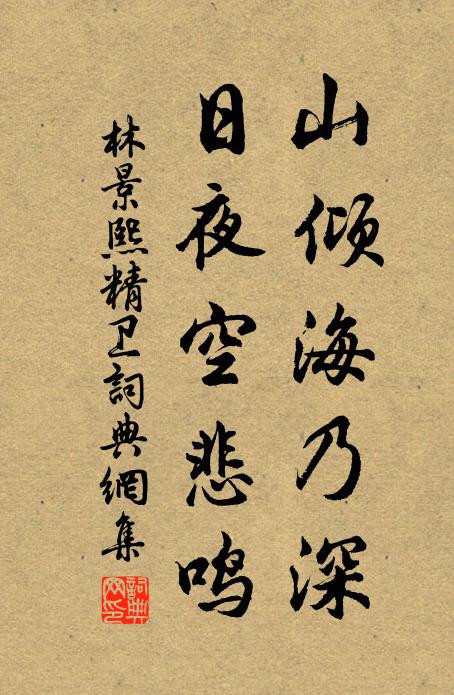 山倾海乃深
日夜空悲鸣
林景熙精卫詞典網集
詞典网印